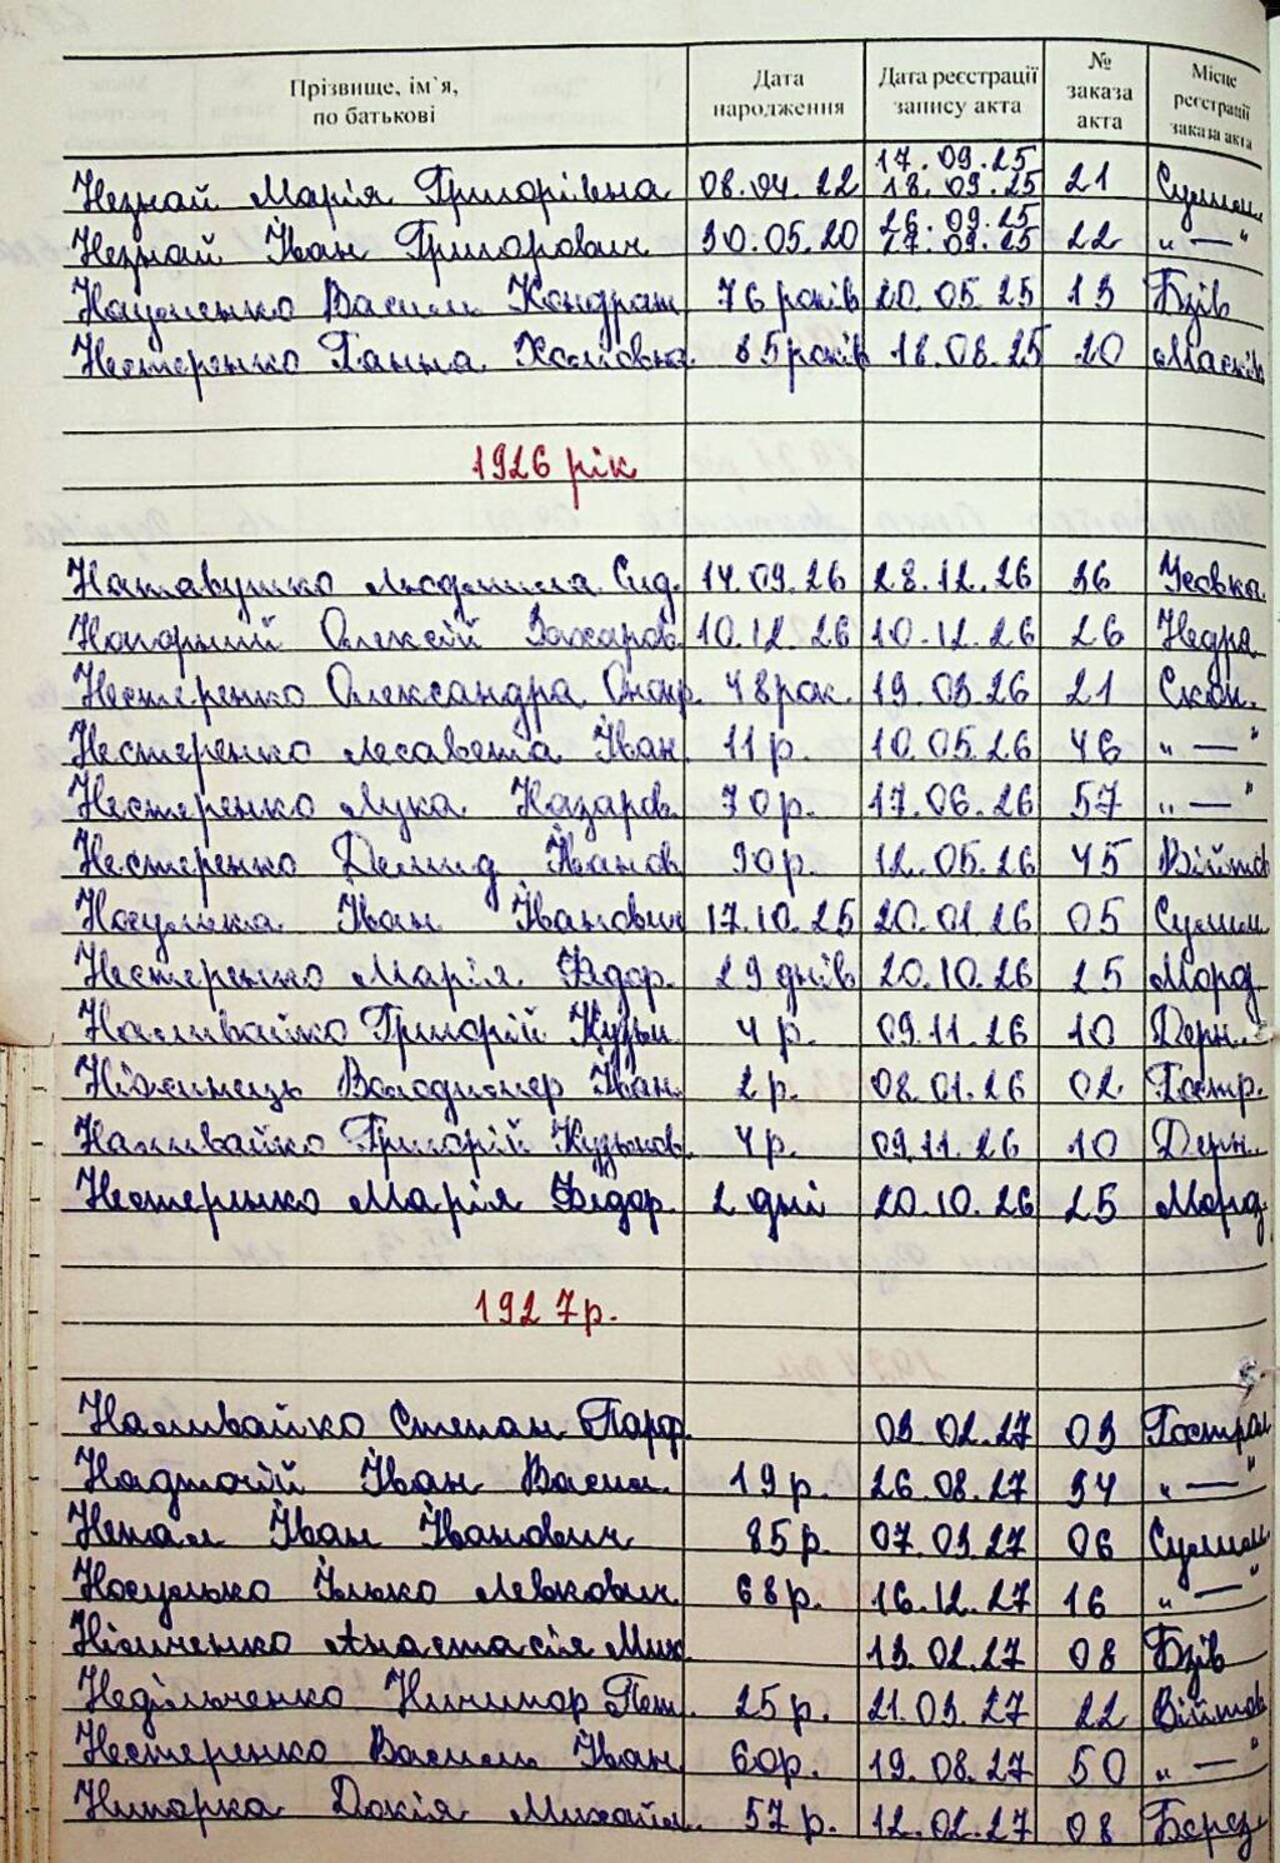 Прізвище, ім`я, по батькові Дата народження Дата реєстрації запису акта № заказа акта Місце реєстрації заказа акта
17.09.25
Незнай Марія Григорівна 08.04.22 18.09.25 21 Сулим.
26.09.25
Незнай Іван Григорович 30.05.20 27.09.25 22 „—"
Науменко Васил Кондрат 76 років 20.05.25 13 Бзів
Нестеренко Ганна 85 років 18.08.25 20 Масків
1926 рік
Людмила Сид. 14.09.26 28.12.26 36 Усовка
Нагорний Олексій Захаров. 10.12.26 10.12.26 26 Недра
Нестеренко Олександра Онопр. 48 рок. 19.03.26 21 Скоп.
Нестеренко Лесавета Іван. 11 р. 10.05.26 46 „—"
Нестеренко Лука Назаров. 70 р. 17.06.26 57 „—"
Нестеренко Демид Іванов. 90 р. 12.05.26 45 Війтов
Носулька Іван Іванович 17.10.25 20.01.26 05 Сулим
Нестеренко Марія Федор. 29 днів 20.10.26 25 Морд.
Наливайко Григорій Кузьм. 4 р. 09.11.26 10 Дерн.
Ніжинець Володимер Іван. 2 р. 08.01.26 02 Гостр.
Наливайко Григорій Кузьмов. 4 р. 09.11.26 10 Дерн.
Нестеренко Марія Федор. 2 дні 20.10.26 25 Морд.
1927 р.
Наливайко Степан Парф. 03.02.27 03 Гострол
Надточій Іван Васил. 19 р. 26.08.27 34 „—"
Іван Іванович 85 р. 07.03.27 06 Сулим
Носулько Ілько Левкович 68 р. 16.12.27 16 „—"
Німченко Анастасія Мих. 13.02.27 08 Бзів
Недільченко Ничипор Пет. 25 р. 21.03.27 22 Війтов
Нестеренко Васил Іван 60 р. 19.08.27 50 „—"
Докія Михайл. 57 р. 12.02.27 08 Берез.